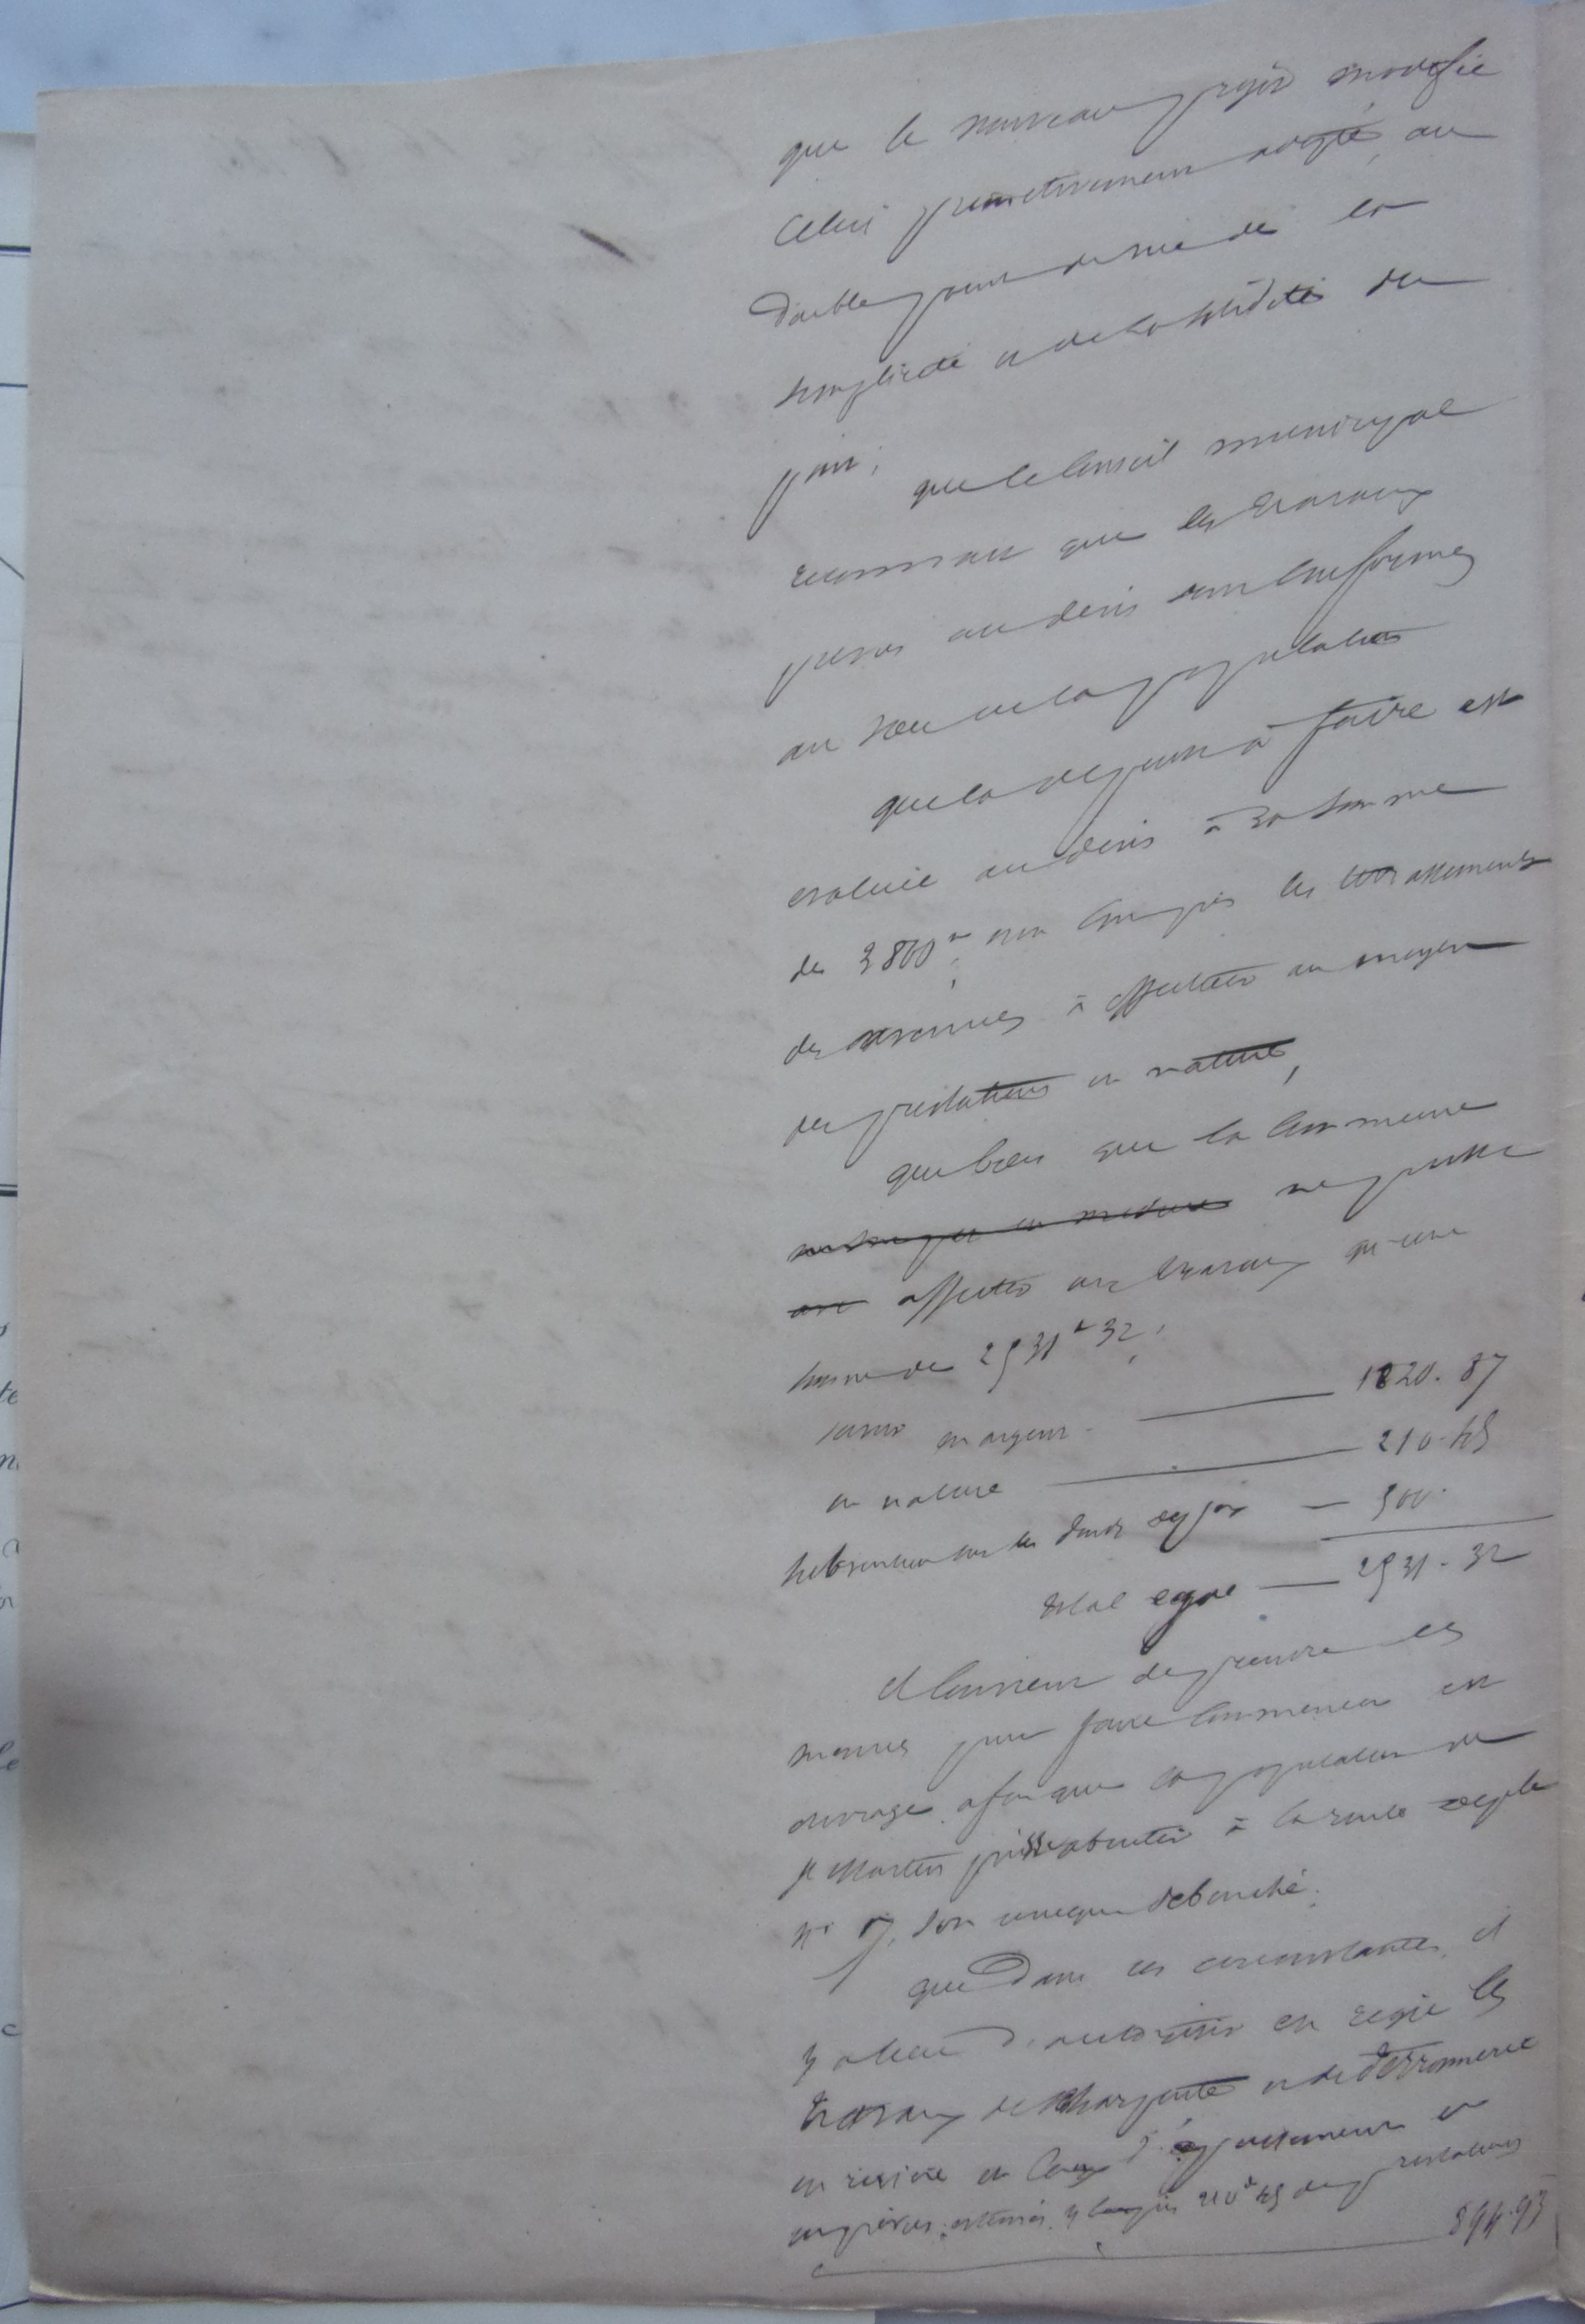 que le nouveau projet modifie
celui primitivement adopté, au
double point de vue de la
simplicité et de la solidité du
pont;
que le Conseil municipal
reconnait que les travaux
prévus au devis sont conformes
au vœu de la population
que la dépense à faire est
évaluée au devis à la somme
de 3800f, non compris les terrassements
des avenues à effectuer au moyen
des prestations en nature,
que bien que la commune
ne puisse
affecter aux travaux qu'une
somme de 2531f 32;
savoir en argent 1820.87
en nature 210.45
subvention sur les fonds dépaux 500.
Total égal 2531.32
il convient de prendre les
mesures pour faire commencer cet
ouvrage afin que la population de
St Martin puisse aboutir à la route dépale
N° 7, son unique débouché.
que dans ces circonstances, il
y a lieu d'autoriser en régie les
travaux de charpente et de ferronnerie
en rivière et ceux d'
en pierres, estimés, y compris 210f 45 de prestations
894.93